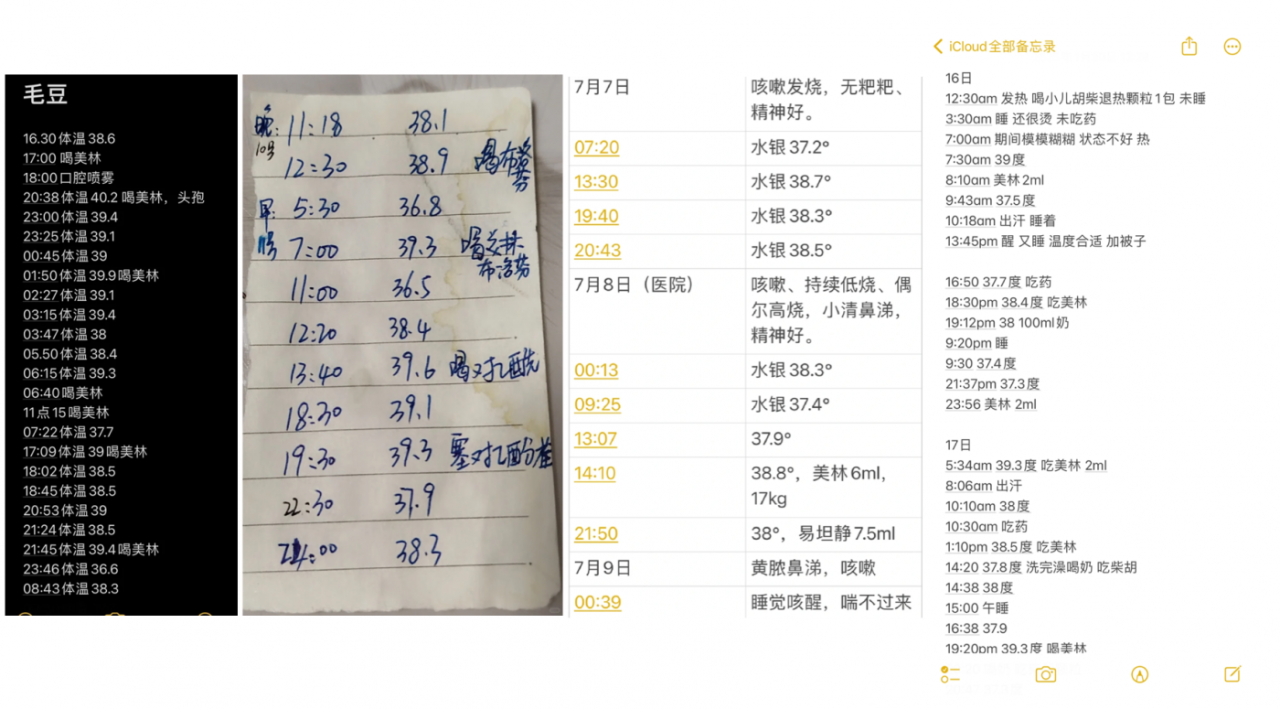 毛豆
16.30体温38.6
17:00 喝美林
18:00口腔喷雾
20:38体温40.2 喝美林，头孢
23:00体温39.4
23:25体温39.1
00:45体温39
01:50体温39.9喝美林
02:27体温39.1
03:15体温39.4
03:47体温38
05.50体温38.4
06:15体温39.3
06:40喝美林
11点15喝美林
07:22体温37.7
17:09体温39喝美林
18:02体温38.5
18:45体温38.5
20:53体温39
21:24体温38.5
21:45体温39.4喝美林
23:46体温36.6
08:43体温38.3
晚: 11:18 38.1
10号 12:30 38.9 喝布洛芬
早: 5:30 36.8
11号 7:00 39.3 喝美林
布洛芬
11:00 36.5
12:20 38.4
13:40 39.6 喝对乙酰
18:30 39.1
19:30 39.3 塞对乙酚栓
22:30 37.9
24:00 38.3
7月7日 咳嗽发烧，无粑粑、
精神好。
07:20 水银37.2°
13:30 水银38.7°
19:40 水银38.3°
20:43 水银38.5°
7月8日（医院） 咳嗽、持续低烧、偶
尔高烧，小清鼻涕，
精神好。
00:13 水银38.3°
09:25 水银37.4°
13:07 37.9°
14:10 38.8°，美林6ml，
17kg
21:50 38°，易坦静7.5ml
7月9日 黄脓鼻涕，咳嗽
00:39 睡觉咳醒，喘不过来
iCloud全部备忘录
16日
12:30am 发热 喝小儿胡柴退热颗粒1包 未睡
3:30am 睡 还很烫 未吃药
7:00am 期间模模糊糊 状态不好 热
7:30am 39度
8:10am 美林2ml
9:43am 37.5度
10:18am 出汗 睡着
13:45pm 醒 又睡 温度合适 加被子
16:50 37.7度 吃药
18:30pm 38.4度 吃美林
19:12pm 38 100ml奶
9:20pm 睡
9:30 37.4度
21:37pm 37.3度
23:56 美林 2ml
17日
5:34am 39.3度 吃美林 2ml
8:06am 出汗
10:10am 38度
10:30am 吃药
1:10pm 38.5度 吃美林
14:20 37.8度 洗完澡喝奶 吃柴胡
14:38 38度
15:00 午睡
16:38 37.9
19:20pm 39.3度 喝美林